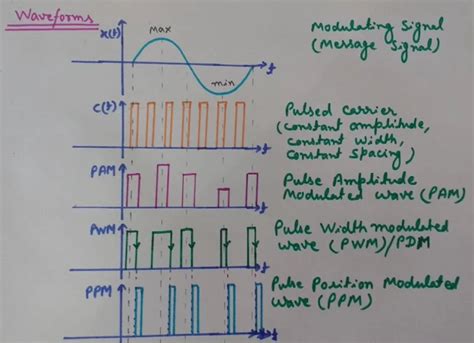 Waveforms
x(t)
max
min
t
Modulating Signal
(Message Signal)
C(t)
t
Pulsed carrier
(constant amplitude,
constant width,
constant spacing)
PAM
t
Pulse Amplitude
Modulated wave (PAM)
PWM
t
Pulse Width modulated
wave (PWM)/PDM
PPM
t
Pulse Position Modulated
Wave (PPM)